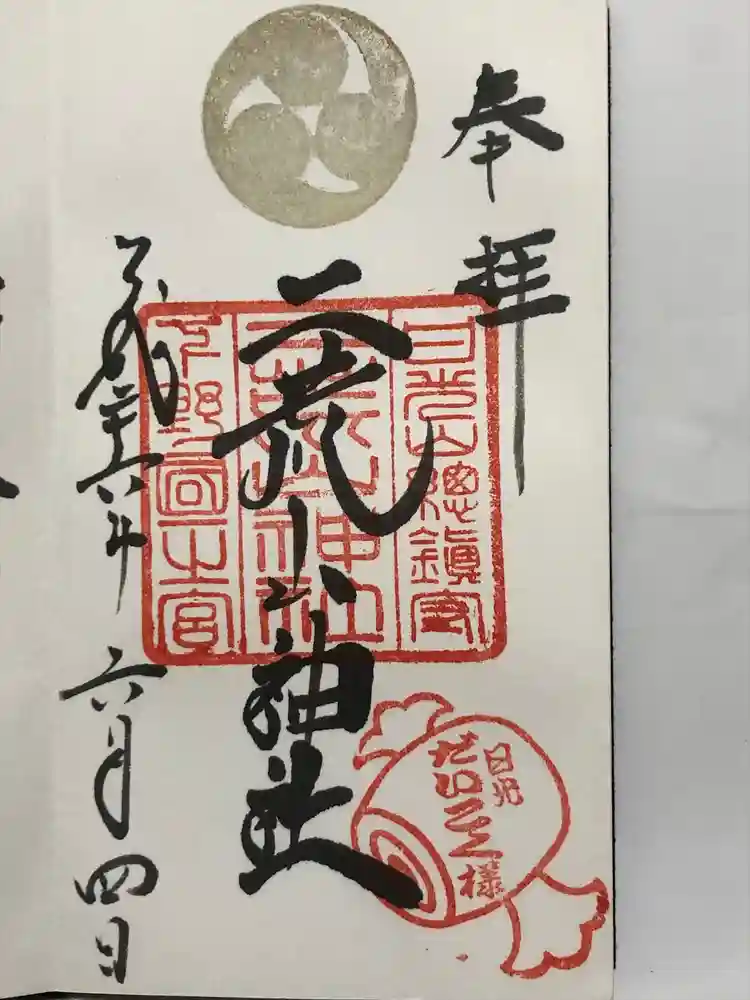 奉拝
日光総鎮守
二荒山神社
二荒山神社
下野國一之宮
平成二十六年六月四日
日光
だいこく様